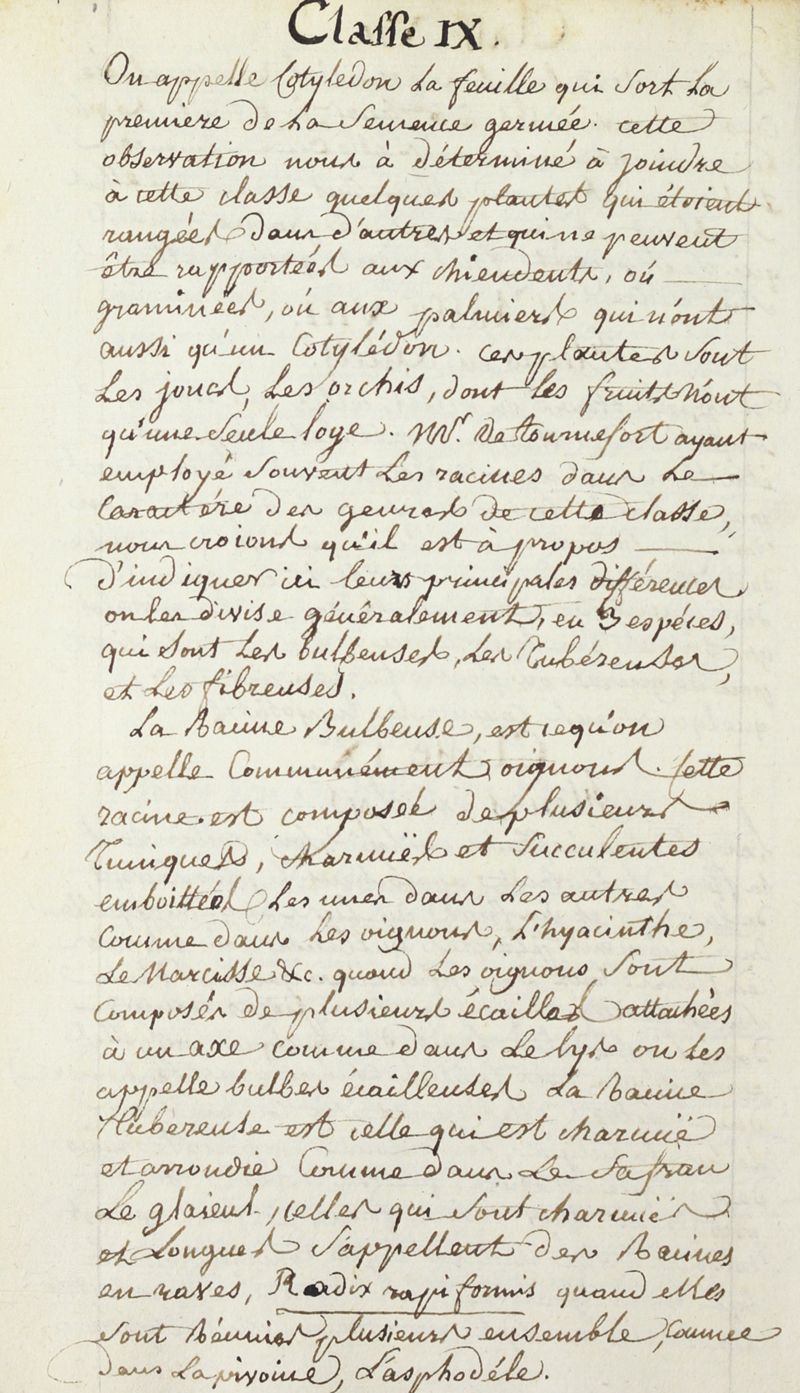 Classe IX.
On appelle Cotyledon la feuille qui sort la
premiere de la semence germée. cette
observation nous à déterminé à joindre
à cette classe quelques plantes qui étoient
rangées dans d'autres et qui ne peuvent
être rapportéés aux chiendents, où
graminées, où aux palmiers qui n'ont
aussi qu'un Cotylédon. ces plantes sont
les joncs, les orchis, dont les fruits n'ont
qu'une seule loge. Mr. de tournefort ayant
employé souvent les racines dans le
Caractére des genres de cette classe,
nous croions qu'il est à propos
d'indiquer ici leurs principales différences
on les divise générâlement, en 3 espéces,
qui sont les bulbeuses, les Tubéreuses,
et les fibreuses.
La Racine Bulbeuse, est ce qu'on
appelle Communément oignons. Cette
racine est composéé de plusieurs
Tuniques, charnuës et succulentes
emboittées les unes dans les autres
Comme dans les oignons, L'hyacinthe,
Le Narcisse &c. quand les oignons sont
Composés de plusieurs écailles attachées
à un axe comme dans le lys on les
appelle bulbes écailleuses La Racine
Tubereuse est celle qui est charnuë
et arrondie Comme dans le Safran
Le glaieul, celles qui sont charnuës
et Longues s'appellent des Racines
en raves, Radix rapiformis quand elles
sont Réunies plusieurs ensemble, comme
dans la pivoine, L'asphodéle.